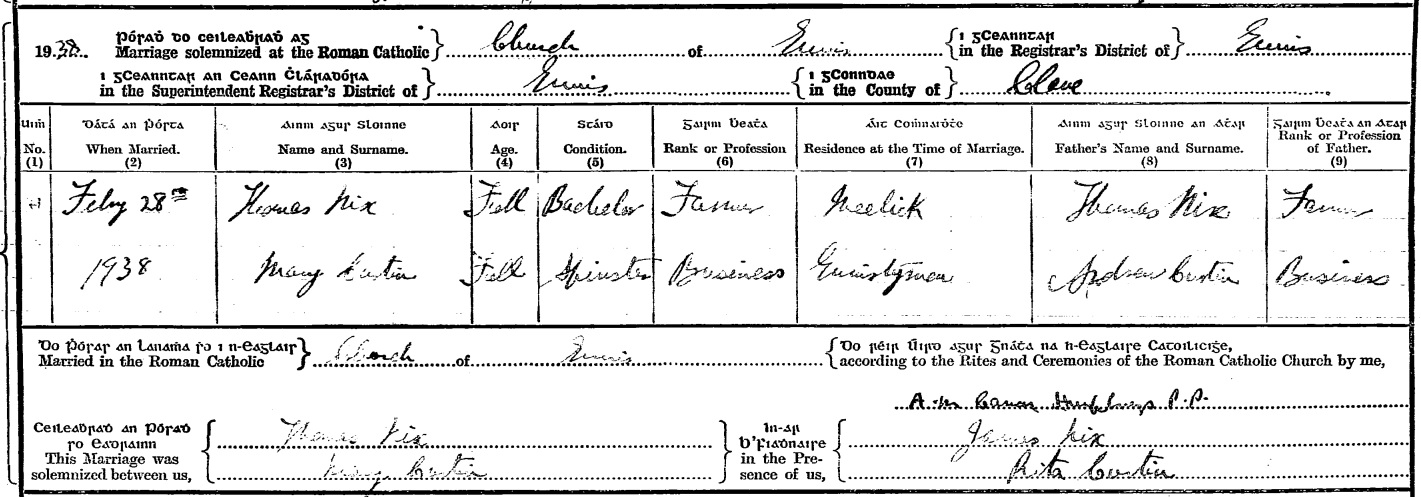 19 38. Pósadh do ceileabhradh ag
Marriage solemnized at the Roman Catholic } Church of Ennis { i gCeanntar
in the Registrar's District of } Ennis
i gCeanntar an Ceann Chláradóra
in the Superintendent Registrar's District of } Ennis { i gConndae
in the County of } Clare
Uimh Dáta an Pósta Ainm agus Sloinne Aois Stáid Gairm Bheatha Áit Comhnaidhthe Ainm agus Sloinne an Athar Gairm Bheatha an Athar
No. When Married. Name and Surname. Age. Condition. Rank or Profession Residence at the Time of Marriage. Father's Name and Surname. Rank or Profession of Father.
(1) (2) (3) (4) (5) (6) (7) (8) (9)
Feby 28th Thomas Nix Full Bachelor Farmer Meelick Thomas Nix Farmer
1938 Mary Custin Full Spinster Business Ennistymon Andrew Custin Business
Do Pósadh an lanamha so i n-Eaglais
Married in the Roman Catholic } Church of Ennis { Do réir Úird agus Gnáta na h-Eaglaise Catoilicighe,
according to the Rites and Ceremonies of the Roman Catholic Church by me,
A. M. Canon Humphreys P.P.
Ceileabhradh an Pósadh
so Eadrainn
This Marriage was
solemnized between us, { Thomas Nix
Mary Custin } In-ar
b'Fiadhnaise
in the Pre-
sence of us, { James Nix
Rita Custin